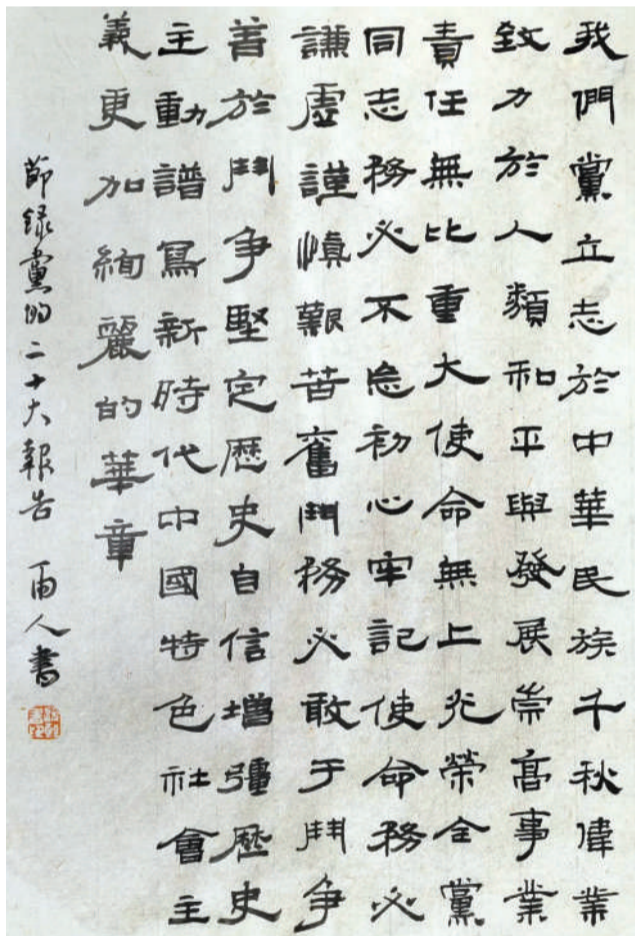 我們黨立志於中華民族千秋偉業
致力於人類和平與發展崇高事業
責任無比重大使命無上光榮全黨
同志務必不忘初心牢記使命務必
謙虛謹慎艱苦奮鬥務必敢于鬥争
善於鬥争堅定歷史自信增彊歷史
主動譜寫新時代中國特色社會主
義更加絢麗的華章
節録黨的二十大報告 雨人書